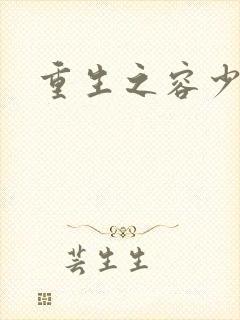 重生之容少
芸生生